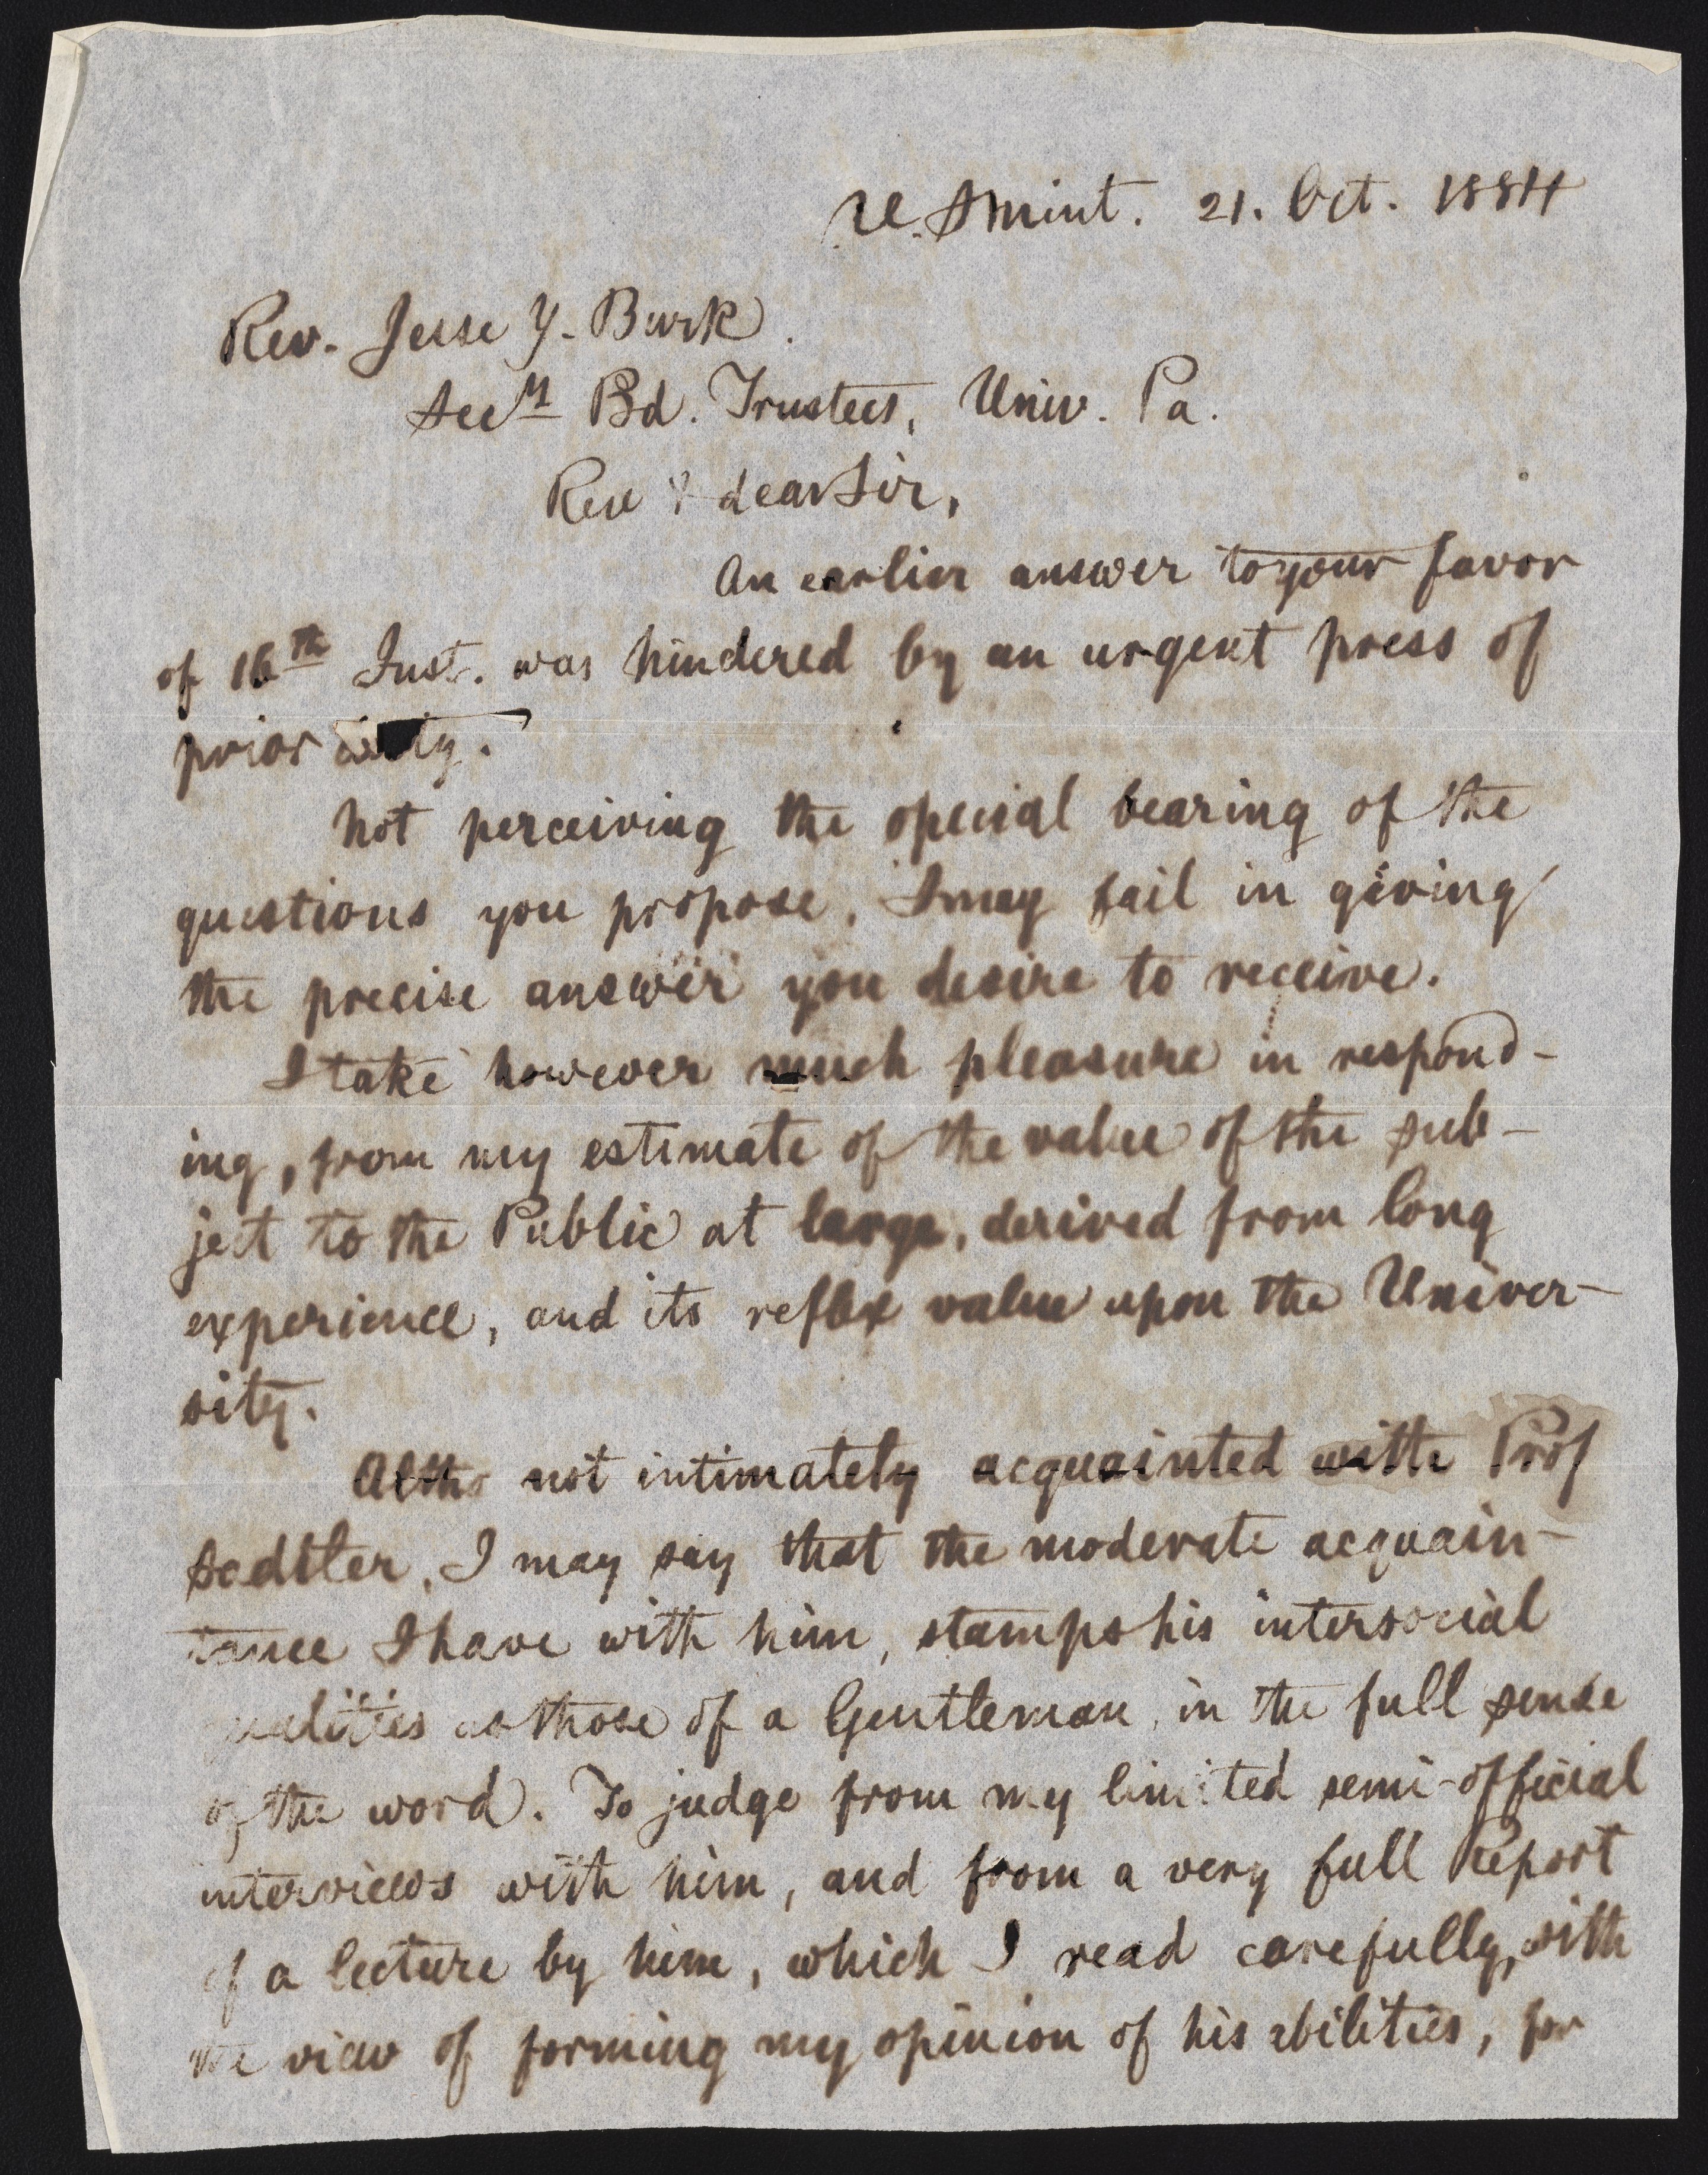 U.S Mint. 21. Oct. 1884
Rev. Jesse Y. Burk.
Secy Bd. Trustees, Univ. Pa.
Rev & dear Sir,
An earlier answer to your favor
of 16th Inst. was hindered by an urgent press of
prior
Not perceiving the special bearing of the
questions you propose, I may fail in giving
the precise answer you desire to receive.
I take however much pleasure in respond-
ing, from my estimate of the value of the sub-
ject to the Public at large, derived from long
experience, and its reflex value upon the Univer-
sity.
Altho not intimately acquainted with Prof
Sadtler, I may say that the moderate acquain-
tance I have with him, stamps his intersocial
qualities as those of a Gentleman, in the full sense
of the word. To judge from my limited semi-official
interviews with him, and from a very full Report
of a lecture by him, which I read carefully, with
the view of forming my opinion of his abilities, for